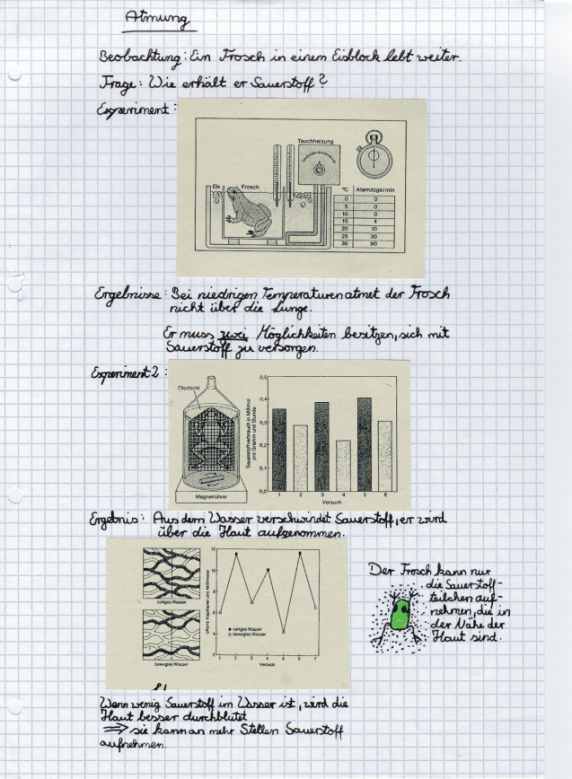 Atmung
Beobachtung: Ein Frosch in einem Eisblock lebt weiter.
Frage: Wie erhält er Sauerstoff?
Experiment:
Tauchheizung
Eis
Frosch
°C Atemzüge/min
0 0
5 0
10 0
15 4
Ergebnisse: Bei niedrigen Temperaturen atmet der Frosch
nicht über die Lunge.
Er muss zwei Möglichkeiten besitzen, sich mit
Sauerstoff zu versorgen.
Experiment 2:
Magnetrührer
Versuch
1 2 3 4 5 6
Ergebnis: Aus dem Wasser verschwindet Sauerstoff, er wird
über die Haut aufgenommen.
ruhiges Wasser
bewegtes Wasser
ruhiges Wasser
bewegtes Wasser
Versuch
1 2 3 4 5 6 7
Der Frosch kann nur
die Sauerstoff-
teilchen auf-
nehmen, die in
der Nähe der
Haut sind.
Wenn wenig Sauerstoff im Wasser ist, wird die
Haut besser durchblutet
⇒ sie kann an mehr Stellen Sauerstoff
aufnehmen.